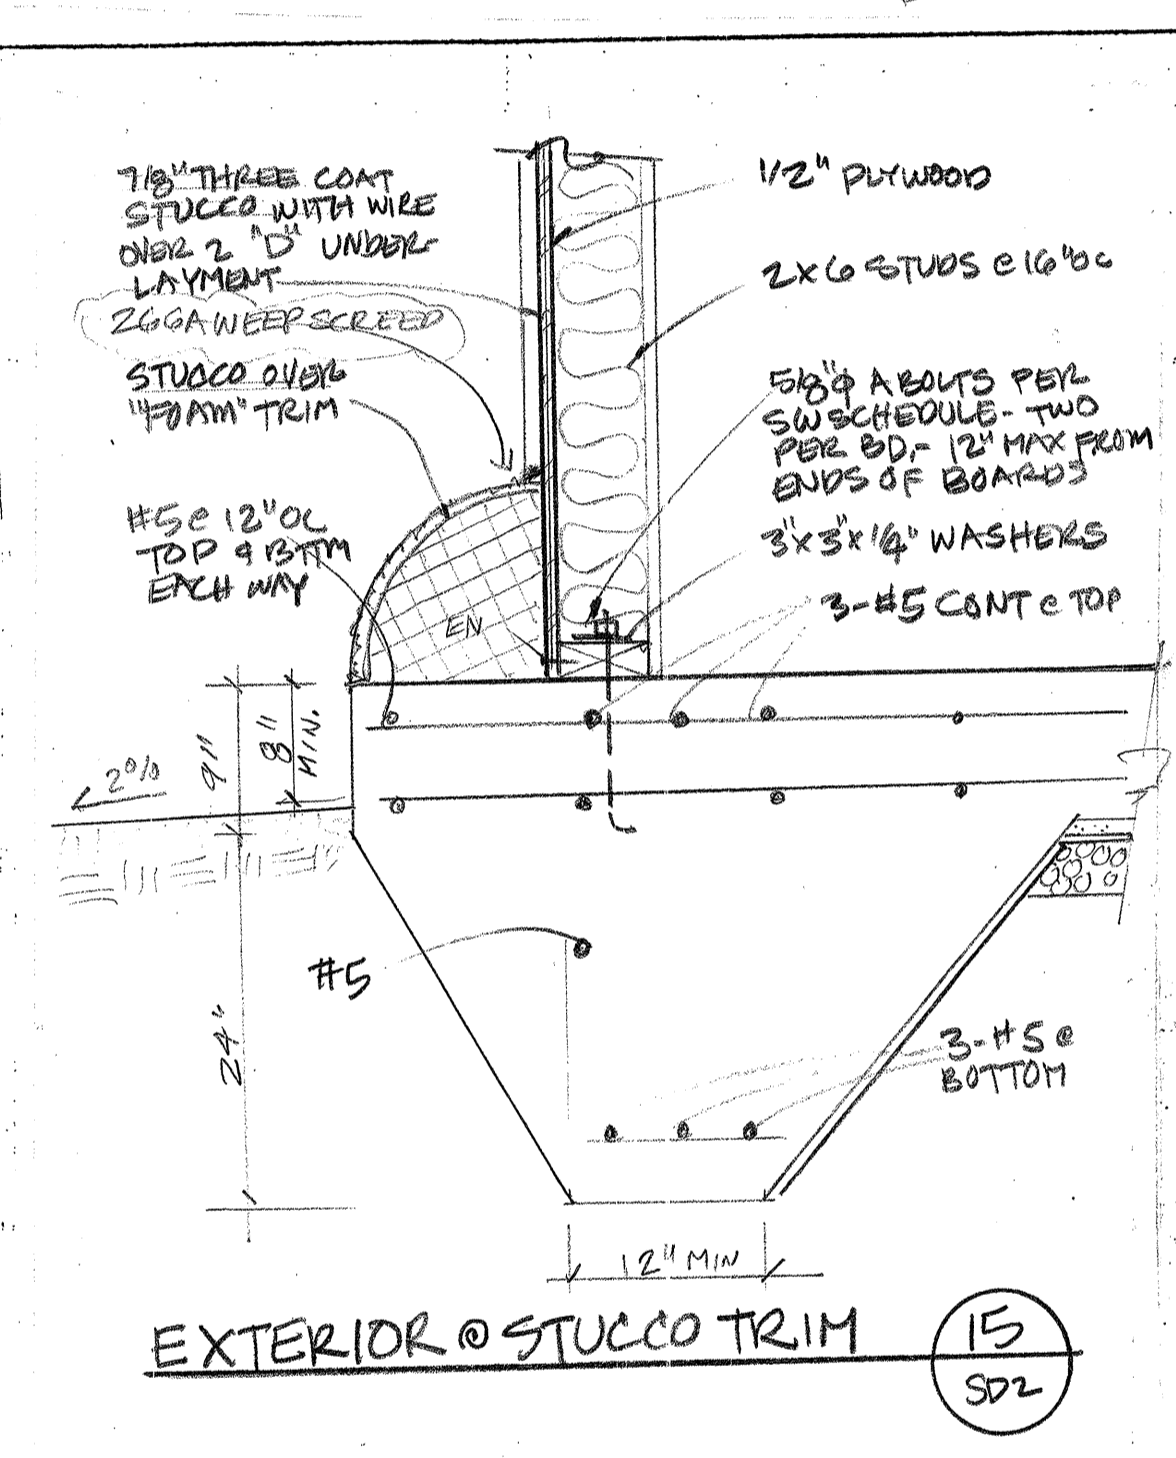 7/8" THREE COAT
STUCCO WITH WIRE
OVER 2 "D" UNDER-
LAYMENT
26GA WEEP SCREED
STUCCO OVER
"FOAM" TRIM
#5@ 12" OC
TOP & BTTM
EACH WAY
1/2" PLYWOOD
2X6 STUDS @ 16" OC
5/8"φ A BOLTS PER
SW SCHEDULE - TWO
PER BD. - 12" MAX FROM
ENDS OF BOARDS
3"X3"X1/4" WASHERS
3-#5 CONT @ TOP
EN
9"
8"
MIN.
2%
#5
24"
3-#5 @
BOTTOM
12" MIN
EXTERIOR @ STUCCO TRIM
15
SD2